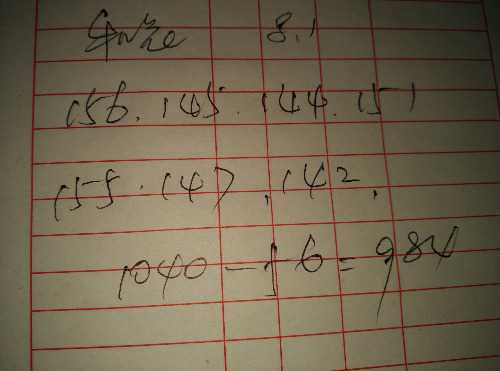 8.1
156.145.144.151
155.147.142.
1040-56=984